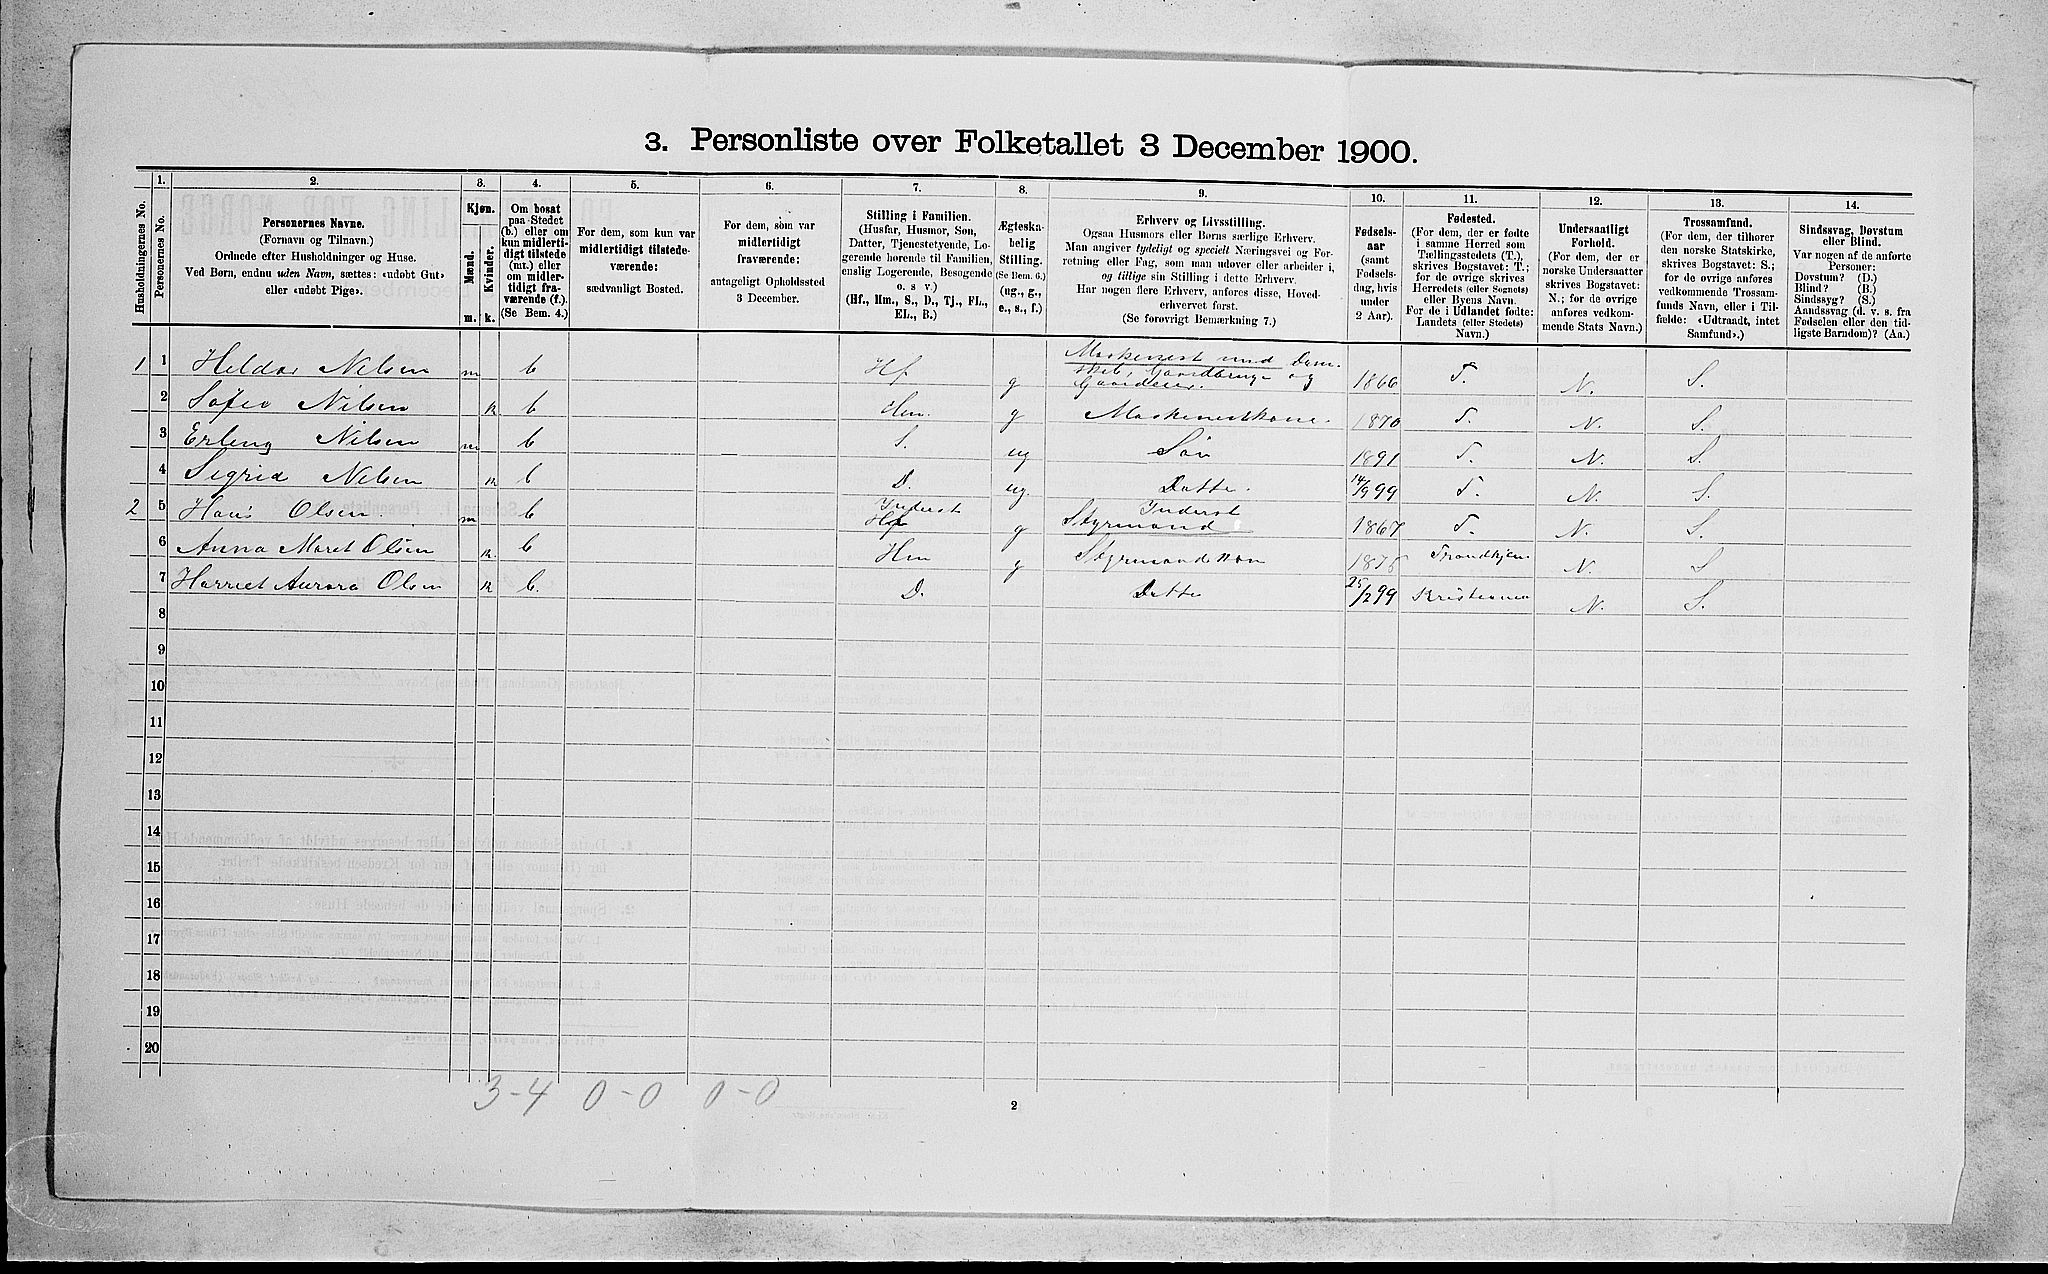 3. Personliste over Folketallet 3 December 1900.
Husholdningernes No.
1.
Personernes No.
2.
Personernes Navne.
(Fornavn og Tilnavn.)
Ordnede efter Husholdninger og Huse.
Ved Børn, endnu uden Navn, sættes: «udøbt Gut»
eller «udøbt Pige».
3.
Kjøn.
Mænd.
Kvinder.
m. k.
4.
Om bosat
paa Stedet
(b.) eller om
kun midlerti-
digt tilstede
(mt.) eller
om midler-
tidigt fra-
værende (f.).
(Se Bem. 4.)
5.
For dem, som kun var
midlertidigt tilstede-
værende:
sædvanligt Bosted.
6.
For dem, som var
midlertidigt
fraværende:
antageligt Opholdssted
3 December.
7.
Stilling i Familien.
(Husfar, Husmor, Søn,
Datter, Tjenestetyende, Lo-
gerende hørende til Familien,
enslig Logerende, Besøgende
o. s v.)
(Hf., Hm., S., D., Tj., FL.,
EL., B.)
8.
Ægteska-
belig
Stilling.
(Se Bem. 6.)
(ug., g.,
e., s., f.)
9.
Erhverv og Livsstilling.
Ogsaa Husmors eller Børns særlige Erhverv.
Man angiver tydeligt og specielt Næringsvei og For-
retning eller Fag, som man udøver eller arbeider i,
og tillige sin Stilling i dette Erhverv.
Har nogen flere Erhverv, anføres disse, Hoved-
erhvervet først.
(Se forøvrigt Bemærkning 7.)
10.
Fødsels-
aar
(samt
Fødsels-
dag, hvis
under
2 Aar).
11.
Fødested.
(For dem, der er fødte
i samme Herred som
Tællingsstedets (T.),
skrives Bogstavet: T.;
for de øvrige skrives
Herredets (eller Sognets)
eller Byens Navn.
For de i Udlandet fødte:
Landets (eller Stedets)
Navn.)
12.
Undersaatligt
Forhold.
(For dem, der er
norske Undersaatter
skrives Bogstavet:
N.; for de øvrige
anføres vedkom-
mende Stats Navn.)
13.
Trossamfund.
(For dem, der tilhører
den norske Statskirke,
skrives Bogstavet: S.;
for de øvrige anføres
vedkommende Trossam-
funds Navn, eller i Til-
fælde: «Udtraadt, intet
Samfund».)
14.
Sindssvag, Døvstum
eller Blind.
Var nogen af de anførte
Personer:
Døvstum? (D.)
Blind? (B.)
Sindssyg? (S.)
Aandssvag (d. v. s. fra
Fødselen eller den tid-
ligste Barndom)? (Aa.)
1 1 Heldar Nelsen m b Hf g Maskenest med Dam-
skib, Gaardbruge og
Gaardeier. 1866 T. N. S.
2 Sofie Nilsen k b Hm. g Maskenestkone. 1870 T. N. S.
3 Erleng Nilsen m b S. ug Søn 1891 T. N. S.
4 Segrid Nelsen k b D. ug. Datte. 14/9 99 T. N. S.
2 5 Hans Olsen m b Inderst Hf g Inderst
Styrmand 1867 T. N. S.
6 Anna Maret Olsen k. b Hm g Styrmandskon Trondhjem N. S
7 Harriet Aurora Olsen k b. D. Datte 25/2 99 Kristiania N. S.
8
9
10
11
12
13
14
15
16
17
18
19
20
3-4 0-0 0-0
2